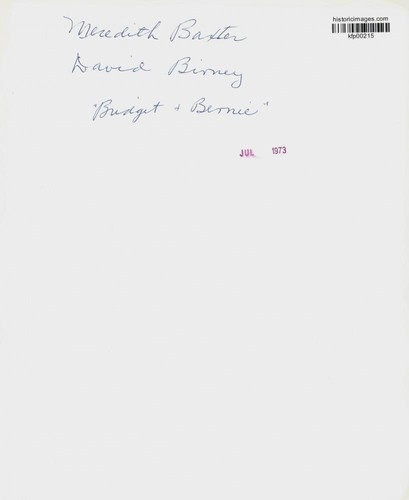 historicimages.com
kfp00215
Meredith Baxter
David Birney
"Bridget + Bernie"
JUL 1973